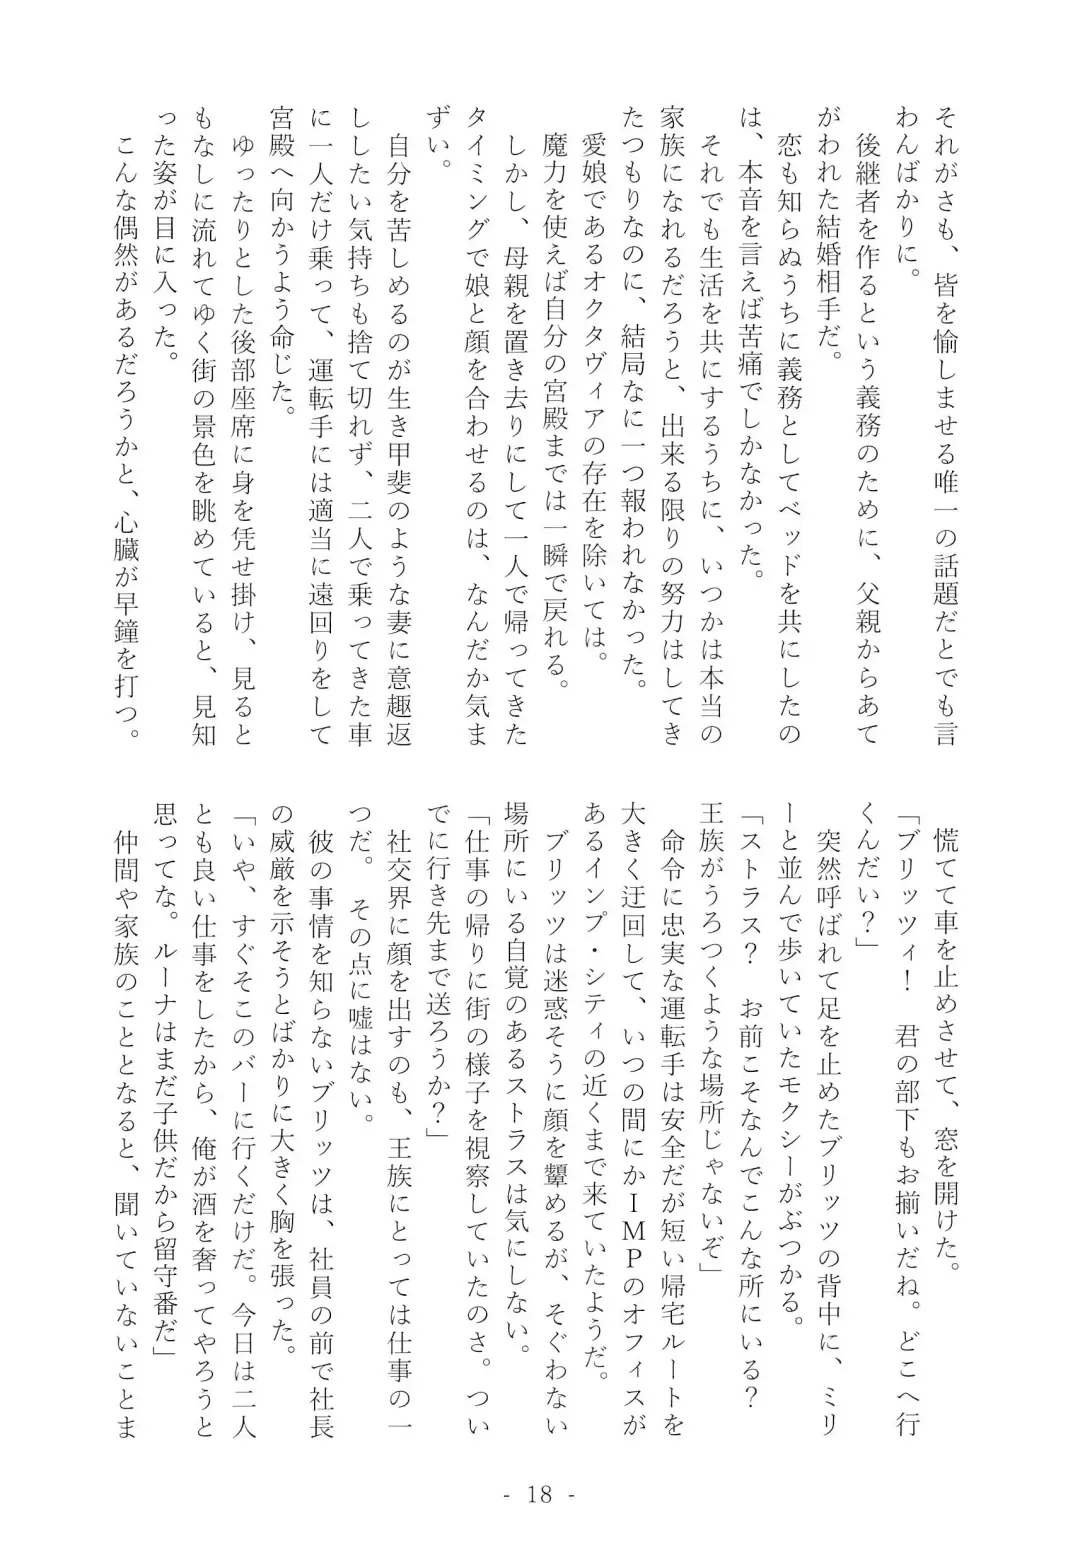 それがさも、皆を愉しませる唯一の話題だとでも言
わんばかりに。
後継者を作るという義務のために、父親からあて
がわれた結婚相手だ。
恋も知らぬうちに義務としてベッドを共にしたの
は、本音を言えば苦痛でしかなかった。
それでも生活を共にするうちに、いつかは本当の
家族になれるだろうと、出来る限りの努力はしてき
たつもりなのに、結局なに一つ報われなかった。
愛娘であるオクタヴィアの存在を除いては。
魔力を使えば自分の宮殿までは一瞬で戻れる。
しかし、母親を置き去りにして一人で帰ってきた
タイミングで娘と顔を合わせるのは、なんだか気ま
ずい。
自分を苦しめるのが生き甲斐のような妻に意趣返
ししたい気持ちも捨て切れず、二人で乗ってきた車
に一人だけ乗って、運転手には適当に遠回りをして
宮殿へ向かうよう命じた。
ゆったりとした後部座席に身を凭せ掛け、見ると
もなしに流れてゆく街の景色を眺めていると、見知
った姿が目に入った。
こんな偶然があるだろうかと、心臓が早鐘を打つ。
慌てて車を止めさせて、窓を開けた。
「ブリッツィ！　君の部下もお揃いだね。どこへ行
くんだい？」
突然呼ばれて足を止めたブリッツの背中に、ミリ
ーと並んで歩いていたモクシーがぶつかる。
「ストラス？　お前こそなんでこんな所にいる？
王族がうろつくような場所じゃないぞ」
命令に忠実な運転手は安全だが短い帰宅ルートを
大きく迂回して、いつの間にかＩＭＰのオフィスが
あるインプ・シティの近くまで来ていたようだ。
ブリッツは迷惑そうに顔を顰めるが、そぐわない
場所にいる自覚のあるストラスは気にしない。
「仕事の帰りに街の様子を視察していたのさ。つい
でに行き先まで送ろうか？」
社交界に顔を出すのも、王族にとっては仕事の一
つだ。　その点に嘘はない。
彼の事情を知らないブリッツは、社員の前で社長
の威厳を示そうとばかりに大きく胸を張った。
「いや、すぐそこのバーに行くだけだ。今日は二人
とも良い仕事をしたから、俺が酒を奢ってやろうと
思ってな。ルーナはまだ子供だから留守番だ」
仲間や家族のこととなると、聞いていないことま
- 18 -